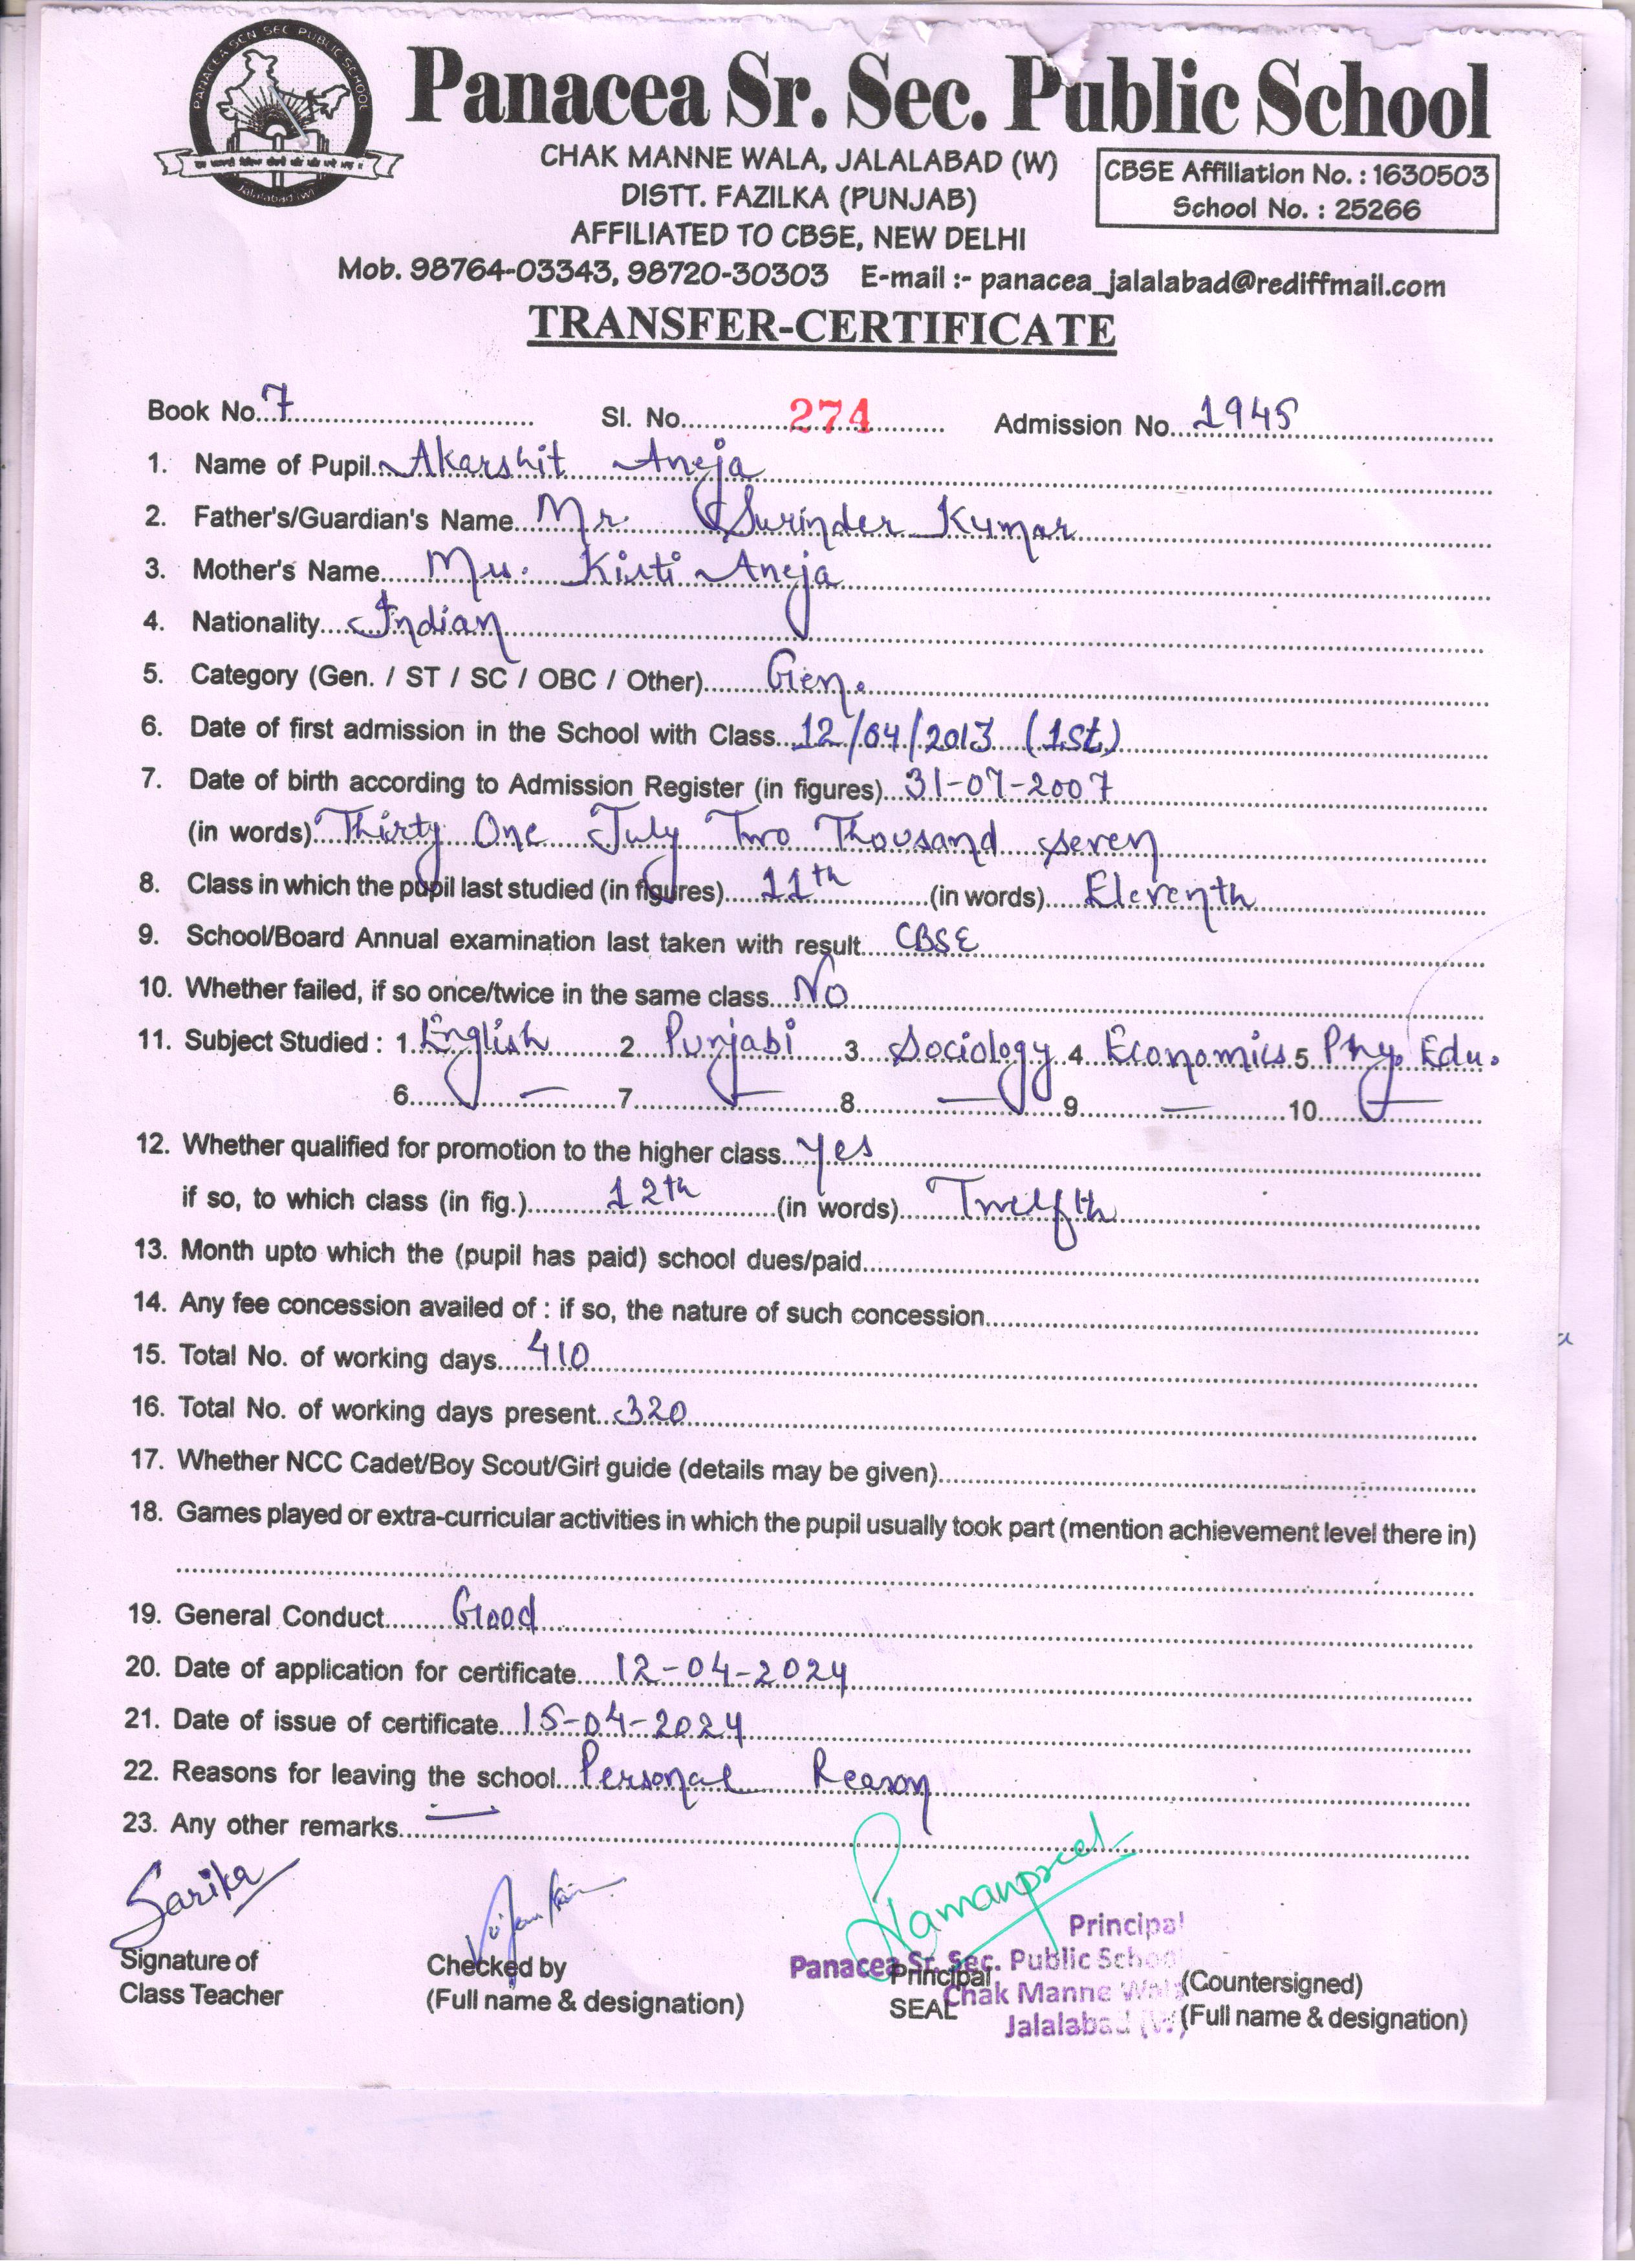 PANACEA SCN SEC PUBLIC SCHOOL
Jalalabad (W)
Panacea Sr. Sec. Public School
CHAK MANNE WALA, JALALABAD (W)
DISTT. FAZILKA (PUNJAB)
AFFILIATED TO CBSE, NEW DELHI
CBSE Affiliation No. : 1630503
School No. : 25266
Mob. 98764-03343, 98720-30303 E-mail :- panacea_jalalabad@rediffmail.com
TRANSFER-CERTIFICATE
Book No. 7 Sl. No. 274 Admission No. 1945
1. Name of Pupil Akarshit Aneja
2. Father's/Guardian's Name Mr. Surinder Kumar
3. Mother's Name Mrs. Kirti Aneja
4. Nationality Indian
5. Category (Gen. / ST / SC / OBC / Other) Gen.
6. Date of first admission in the School with Class 12/04/2013 (1st)
7. Date of birth according to Admission Register (in figures) 31-07-2007
(in words) Thirty One July Two Thousand seven
8. Class in which the pupil last studied (in figures) 11th (in words) Eleventh
9. School/Board Annual examination last taken with result CBSE
10. Whether failed, if so once/twice in the same class No
11. Subject Studied : 1. English 2 Punjabi 3 Sociology 4 Economics 5 Phy. Edu.
6 — 7 — 8 — 9 — 10 —
12. Whether qualified for promotion to the higher class yes
if so, to which class (in fig.) 12th (in words) Twelfth
13. Month upto which the (pupil has paid) school dues/paid
14. Any fee concession availed of : if so, the nature of such concession
15. Total No. of working days 410
16. Total No. of working days present 320
17. Whether NCC Cadet/Boy Scout/Girl guide (details may be given)
18. Games played or extra-curricular activities in which the pupil usually took part (mention achievement level there in)
19. General Conduct Good
20. Date of application for certificate 12-04-2024
21. Date of issue of certificate 15-04-2024
22. Reasons for leaving the school Personal Reason
23. Any other remarks —
Sarika
Ramanpreet
Signature of
Class Teacher
Checked by
(Full name & designation)
Principal
SEAL
Principal
Panacea Sr. Sec. Public School
Chak Manne Wala
Jalalabad (W)
(Countersigned)
(Full name & designation)